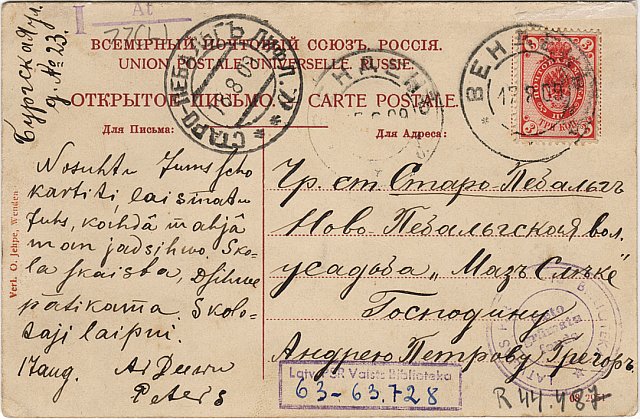 At
ВСЕМІРНЫЙ ПОЧТОВЫЙ СОЮЗЪ. РОССІЯ.
UNION POSTALE UNIVERSELLE. RUSSIE.
ОТКРЫТОЕ ПИСЬМО. — CARTE POSTALE.
Для Письма:
Для Адреса:
СТАРО-ПЕБАЛЬГЪ ЛИФЛ.
ВЕНДЕНЪ
Бургская ул.
д. № 23.
Nosuhtu Jums scho
kartiti, lai smatu
Juhs, kahdā mahjā
man jadsihwo. Sko-
la skaista, dsihwe
patikama. Skolo-
taji laipni.
17 aug. Ar
Peters
Чр. ст. Старо-Пебальгъ
Ново-Пебальгская вол.
усадьба „Мазъ
Господину
Андрею Петрову Грегоръ
Verl. O. Jeppe, Wenden
Latv. PSR Valsts Bibliotēka
63-63.728
R 44487